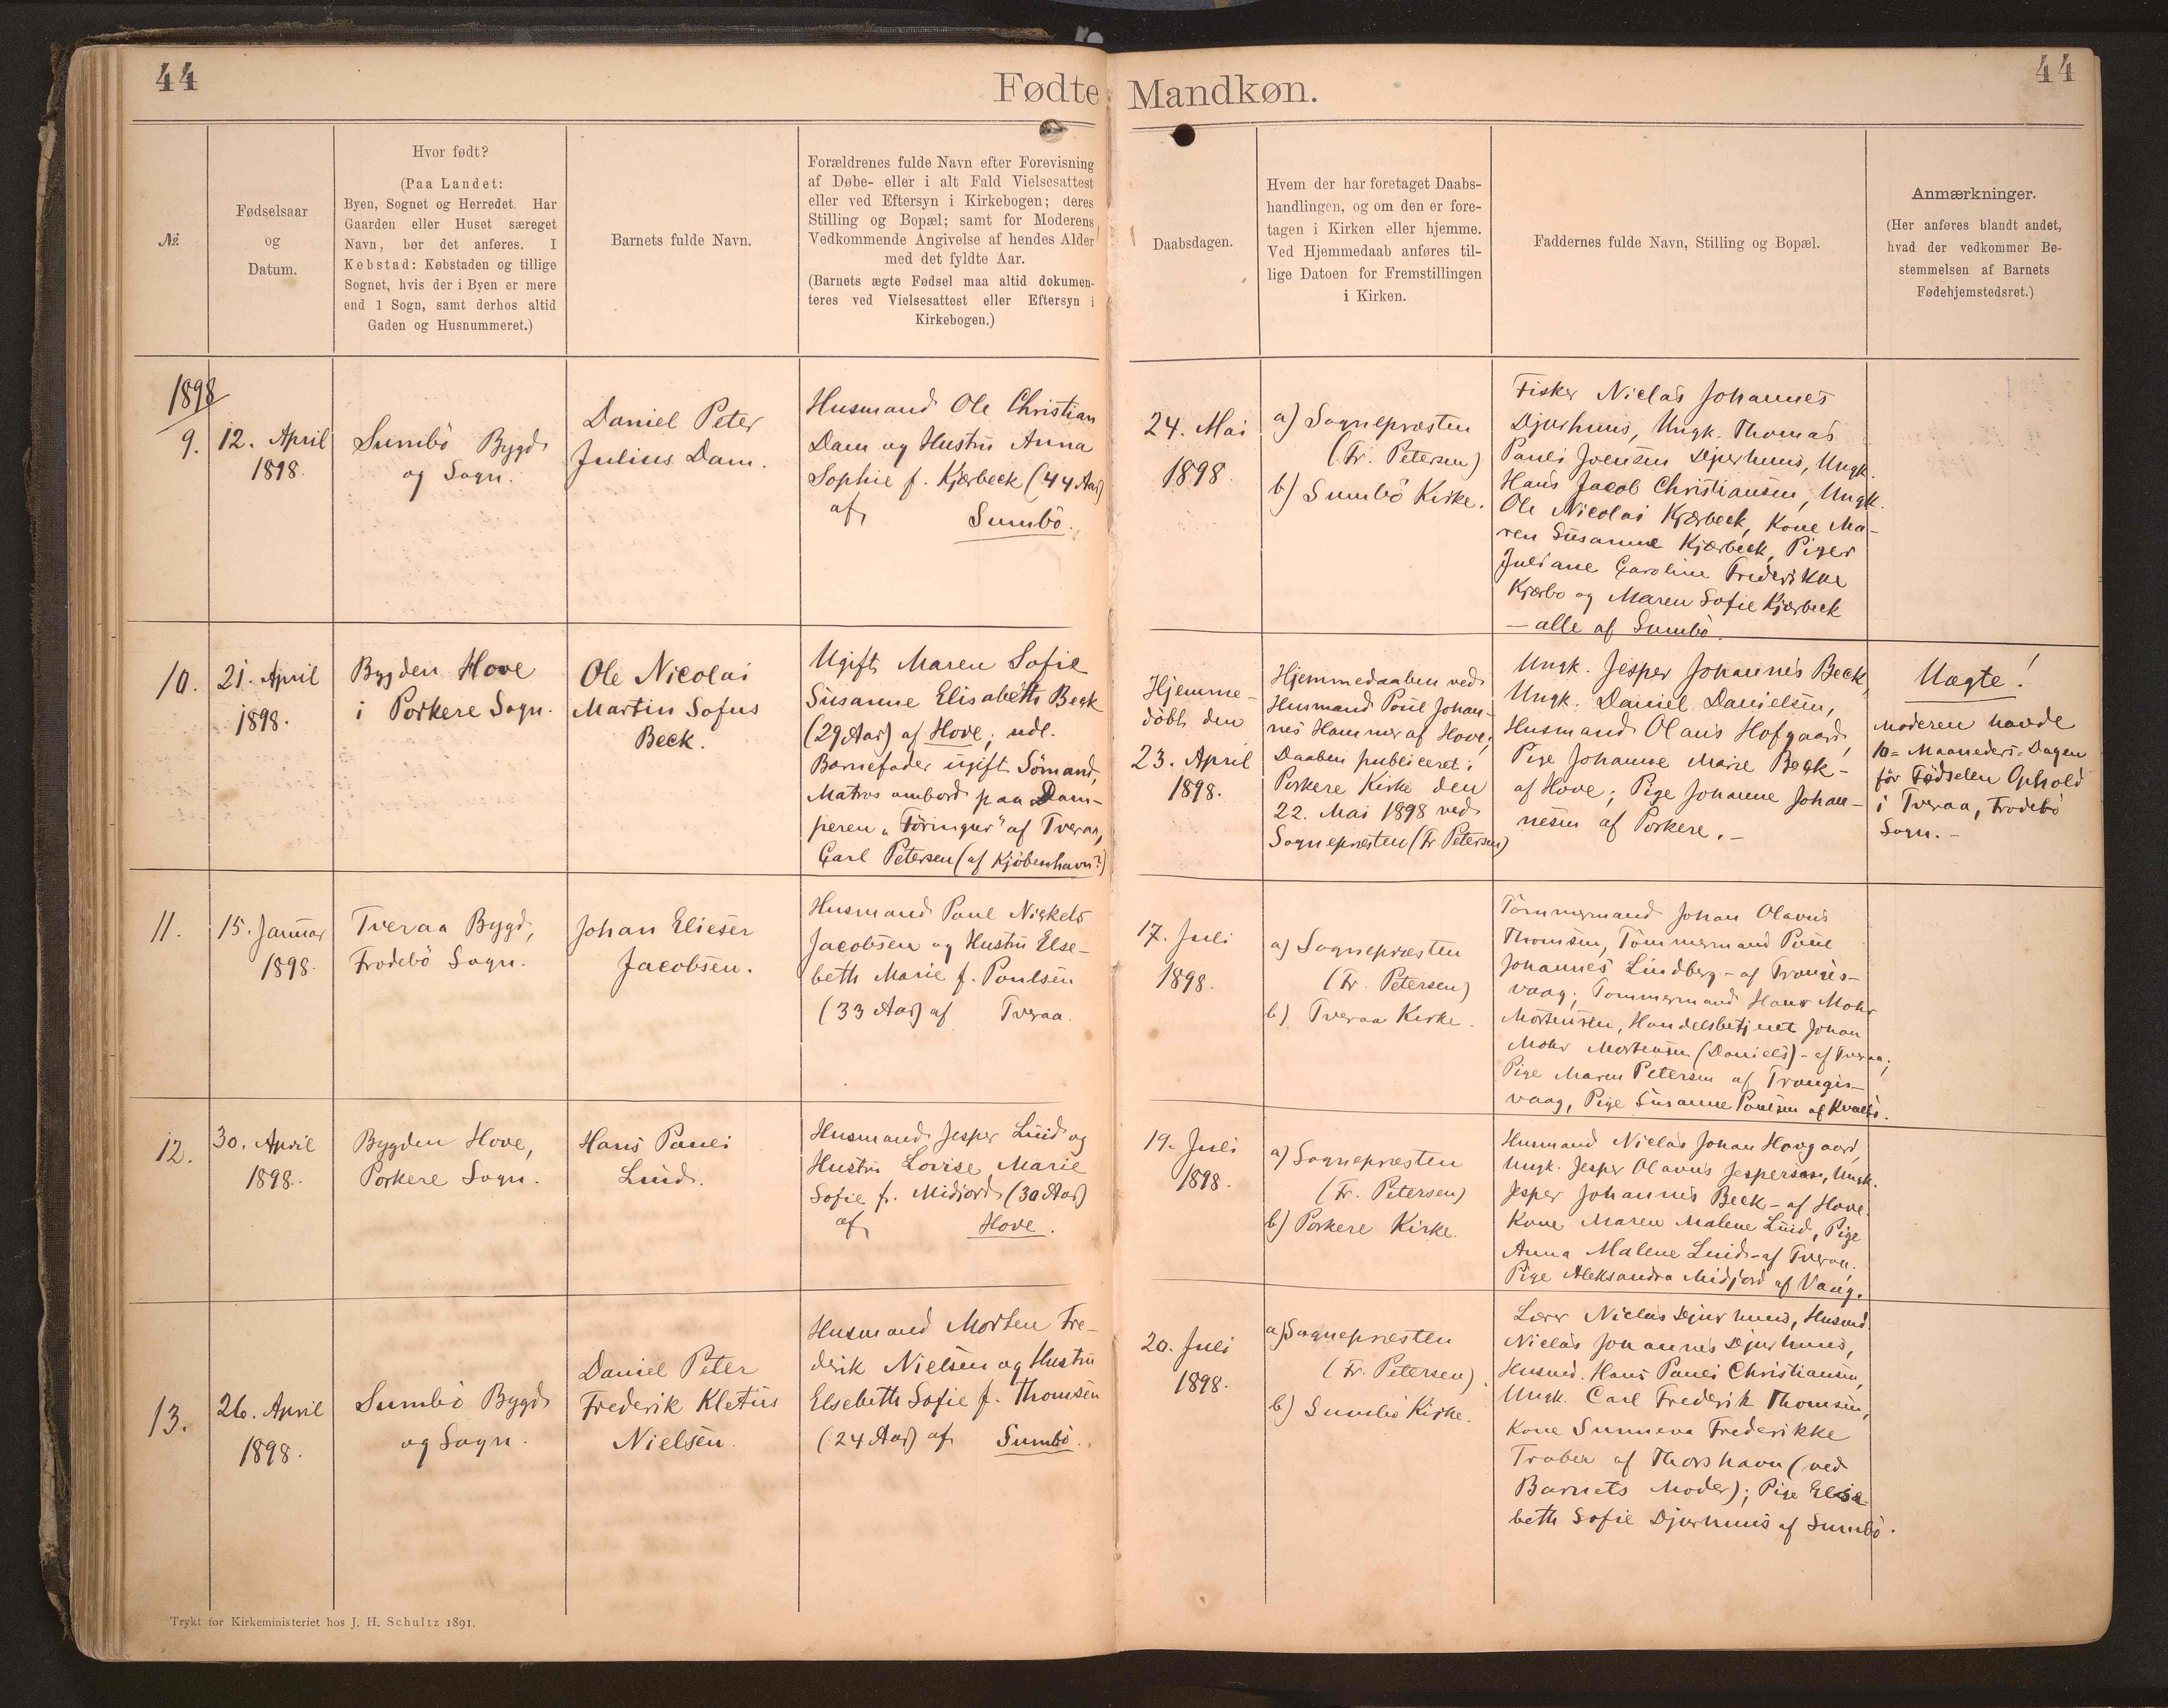 44
Fødte Mandkøn.
44
№
Fødselsaar
og
Datum.
Hvor født?
(Paa Landet:
Byen, Sognet og Herredet. Har
Gaarden eller Huset særeget
Navn, bør det anføres. I
Købstad: Købstaden og tillige
Sognet, hvis der i Byen er mere
end 1 Sogn, samt derhos altid
Gaden og Husnummeret.)
Barnets fulde Navn.
Forældrenes fulde Navn efter Forevisning
af Døbe- eller i alt Fald Vielsesattest
eller ved Eftersyn i Kirkebogen; deres
Stilling og Bopæl; samt for Moderens
Vedkommende Angivelse af hendes Alder
med det fyldte Aar.
(Barnets ægte Fødsel maa altid dokumen-
teres ved Vielsesattest eller Eftersyn i
Kirkebogen.)
Daabsdagen.
Hvem der har foretaget Daabs-
handlingen, og om den er fore-
tagen i Kirken eller hjemme.
Ved Hjemmedaab anføres til-
lige Datoen for Fremstillingen
i Kirken.
Faddernes fulde Navn, Stilling og Bopæl.
Anmærkninger.
(Her anføres blandt andet,
hvad der vedkommer Be-
stemmelsen af Barnets
Fødehjemstedsret.)
1898
9.
12. April
1898.
Sumbö Bygd
og Sogn.
Daniel Peter
Julius Dam.
Husmand Ole Christian
Dam og Hustru Anna
Sophie f. Kjærbeck (44 Aar)
af Sumbö.
24. Mai
1898.
a) Sognepræsten
(Fr. Petersen)
b) Sumbö Kirke.
Fisker Niclas Johannes
Djurhuus, Ungk. Thomas
Pauli Joensen Djurhuus, Ungk.
Hans Jacob Christiansen, Ungk.
Ole Nicolai Kjærbeck, Kone Ma-
ren Susanne Kjærbeck, Piger
Juliane Caroline Frederikke
Kjærbo og Maren Sofie Kjærbeck
— alle af Sumbö.
10.
21. April
1898.
Bygden Hove
i Porkere Sogn.
Ole Nicolai
Martin Sofus
Beck.
Ugift Maren Sofie
Susanne Elisabeth Beck
(29 Aar) af Hove; udl.
Barnefader ugift Sömand,
Matros ombord paa Dam-
peren „Föringur" af Tveraa,
Carl Petersen (af Kjöbenhavn?)
Hjemme-
döbt den
23. April
1898.
Hjemmedaaben ved
Husmand Poul Johan-
nes Hammer af Hove;
Daaben publiceret i
Porkere Kirke den
22. Mai 1898 ved
Sognepræsten (Fr Petersen)
Ungk. Jesper Johannes Beck,
Ungk. Daniel Danielsen,
Husmand Olaus Hofgaard,
Pige Johanne Marie Beck -
af Hove; Pige Johanne Johan-
nesen af Porkere. -
Uægte!
Moderen havde
10=Maaneders-Dagen
för Födselen Ophold
i Tveraa, Frodebö
Sogn. -
11.
15. Januar
1898.
Tveraa Bygd,
Frodebö Sogn.
Johan Elieser
Jacobsen.
Husmand Poul Nickels
Jacobsen og Hustru Else-
beth Marie f. Poulsen
(33 Aar) af Tveraa.
17. Juli
1898.
a) Sognepræsten
(Fr. Petersen)
b) Tveraa Kirke.
Tömmermand Johan Olavus
Thomsen, Tömmermand Poul
Johannes Lindberg - af Trangis-
vaag; Tömmermand Hans Mohr
Mortensen, Handelsbetjent Johan
Mohr Mortensen (Daniels) - af Tveraa;
Pige Maren Petersen af Trangis-
vaag, Pige Susanne Poulsen af Kvalbö.
12.
30. April
1898.
Bygden Hove,
Porkere Sogn.
Hans Pauli
Luid.
Husmand Jesper Luid og
Hustru Lovise Marie
Sofie f. Midjord (30 Aar)
af Hove.
19. Juli
1898.
a) Sognepræsten
(Fr. Petersen)
b) Porkere Kirke.
Husmand Niclas Johan Hovgaard,
Ungk. Jesper Olavus Jespersen, Ungk.
Jesper Johannes Beck - af Hove.
Kone Maren Malene Luid, Pige
Anna Malene Luid - af Tveraa.
Pige Aleksandra Midjord af Vaag.
13.
26. April
1898.
Sumbö Bygd
og Sogn.
Daniel Peter
Frederik Kletus
Nielsen.
Husmand Morten Fre-
derik Nielsen og Hustru
Elsebeth Sofie f. Thomsen
(24 Aar) af Sumbö.
20. Juli
1898.
a) Sognepræsten
(Fr. Petersen).
b) Sumbö Kirke.
Lærer Niclas Djurhuus, Husmd.
Niclas Johannes Djurhuus,
Husmd. Hans Pauli Christiansen,
Ungk. Carl Frederik Thomsen,
Kone Sunneva Frederikke
af Thorshavn (ved
Barnets Moder); Pige Elsa-
beth Sofie Djurhuus af Sumbö.
Trykt for Kirkeministeriet hos J. H. Schultz 1891.